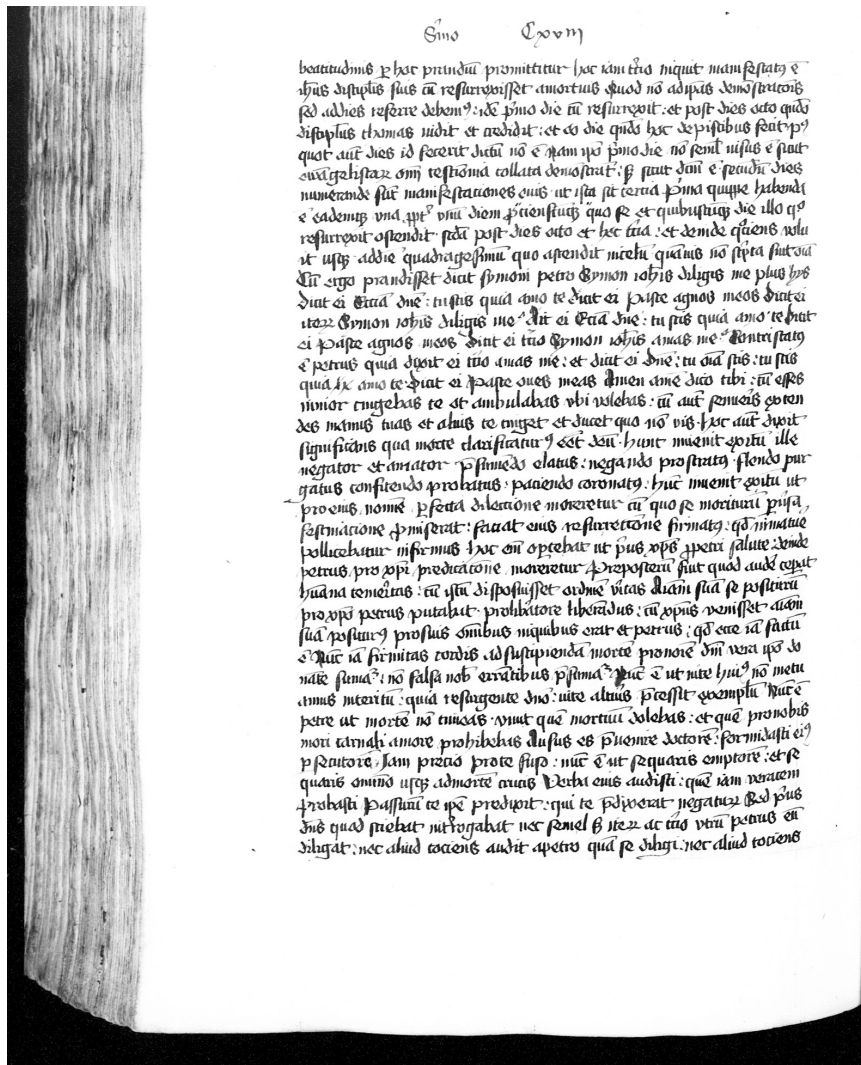 Sermo Cxviij
beatitudinis per hoc prandiū promittitur hoc iam tercio inquit manifestatꝰ ē
ihūs discipulis suis cū resurrexisset amortuis Quod nō adipās demōstracōis
sed addies referre debemꝰ: idē pͥmo die cū resurrexit: et post dies octo qn̄do
discipulus thomas uidit et credidit: et eo die qn̄do hoc de piscibus fecit pꝰ
quot aut̄ dies id fecerit dictū nō ē Nam ipō pͥmo die nō semel uisus ē sicut
ewāgelistarū om̄ testiōnia collata demōstrāt: sꝫ sicut dcm̄ ē secūdū dies
numerande sūt manifestaciones eius ut ista sit tercia pͥma quippe habenda
ē eademqꝫ vna ꝓptͥ vnū diem quo se et quibuscūqꝫ die illo qͦ
resurrexit ostendit scd̄a post dies octo et hec tͨia: et deinde qͦciens volu
it usqꝫ addie quadragesimū quo ascendit incelū quāuis nō scͥpta sint oīa
Cū ergo prandisset dicit symoni petro Symon ioh̄is diligis me plus hys
dicit ei Eciā dn̄e: tu scis quia amo te dicit ei Pasce agnos meos Dicit ei
iterū Symon ioh̄is diligis me Ait ei Eciā dn̄e: tu scis quia amo te Dicit
ei Pasce agnos meos Dicit ei tͨio Symon ioh̄is amas me Contristatꝰ
ē petrus quia dixit ei tͨio amas me: et dicit ei dn̄e: tu oīa scis: tu scis
quia amo te Dicit ei Pasce oues meas Amen amē dico tibi: cū esses
iunior cingebas te et ambulabas vbi volebas: cū aut̄ senueris exten
des manus tuas et alius te cinget et ducet quo nō vis hoc aut̄ dixit
significans qua morte clarificaturꝰ eēt deū hunc inuenit exitū ille
negator et amator p̄sumēdo elatus: negando prostratꝰ flendo pur
gatus confitendo probatus: paciendo coronatꝰ: hūc inuenit exitū ut
pro eius nomīe ꝑfecta dileccione moreretur cū quo se moriturū ꝑuͥsa
festinacione ꝓmiserat: faciat eius resurrectione firmatꝰ: qd̄ inmature
pollicebatur infirmus hoc em̄ oꝑtebat ut pͥus xp̄s ꝓ petri salute: deinde
petrus pro xp̄i predicatōne moreretur Preposterū fuit quod audē ceperat
hūana temeritas: cū istū disposuisset ordinē vͥitas Aīam suā se positurū
pro xp̄o petrus putabat: pro liberatore liberādus: cū xp̄us venisset aīam
suā positurꝰ pro suis om̄ibus inquibus erat et petrus: qd̄ ecce iā factū
ē Nūc iā firmitas cordis ad suscipiendā mortē pro noīe dn̄i vera ipō do
nāte sumatͬ: nō falsa nob̄ errātibus p̄sumatͬ Nūc ē ut uite huiꝰ nō metu
amus interitū: quia resurgente dn̄o: uite altiͥus p̄cessit exemplū Nūc ē
petre ut mortē nō timeas: viuit quē mortuū dolebas: et quē pro nobis
mori carnali amore prohibebas Ausus es p̄uenire doctorē: formidasti eiꝰ
ꝑsecutorē Iam precio pro te fuso: nūc ē ut sequaris emptorē: et se
quaris om̄ino usqꝫ admortē crucis Verba eius audisti: quē iam veracem
probasti Passurū te ip̄e predixit: qui te p̄dixerat negaturū Sed pͥus
dn̄s quod sciebat intͬrogabat nec semel sꝫ iterū ac tͨio vtrū petrus eū
diligāt: nec aliud tociens audit apetro quā se diligi: nec aliud tociens